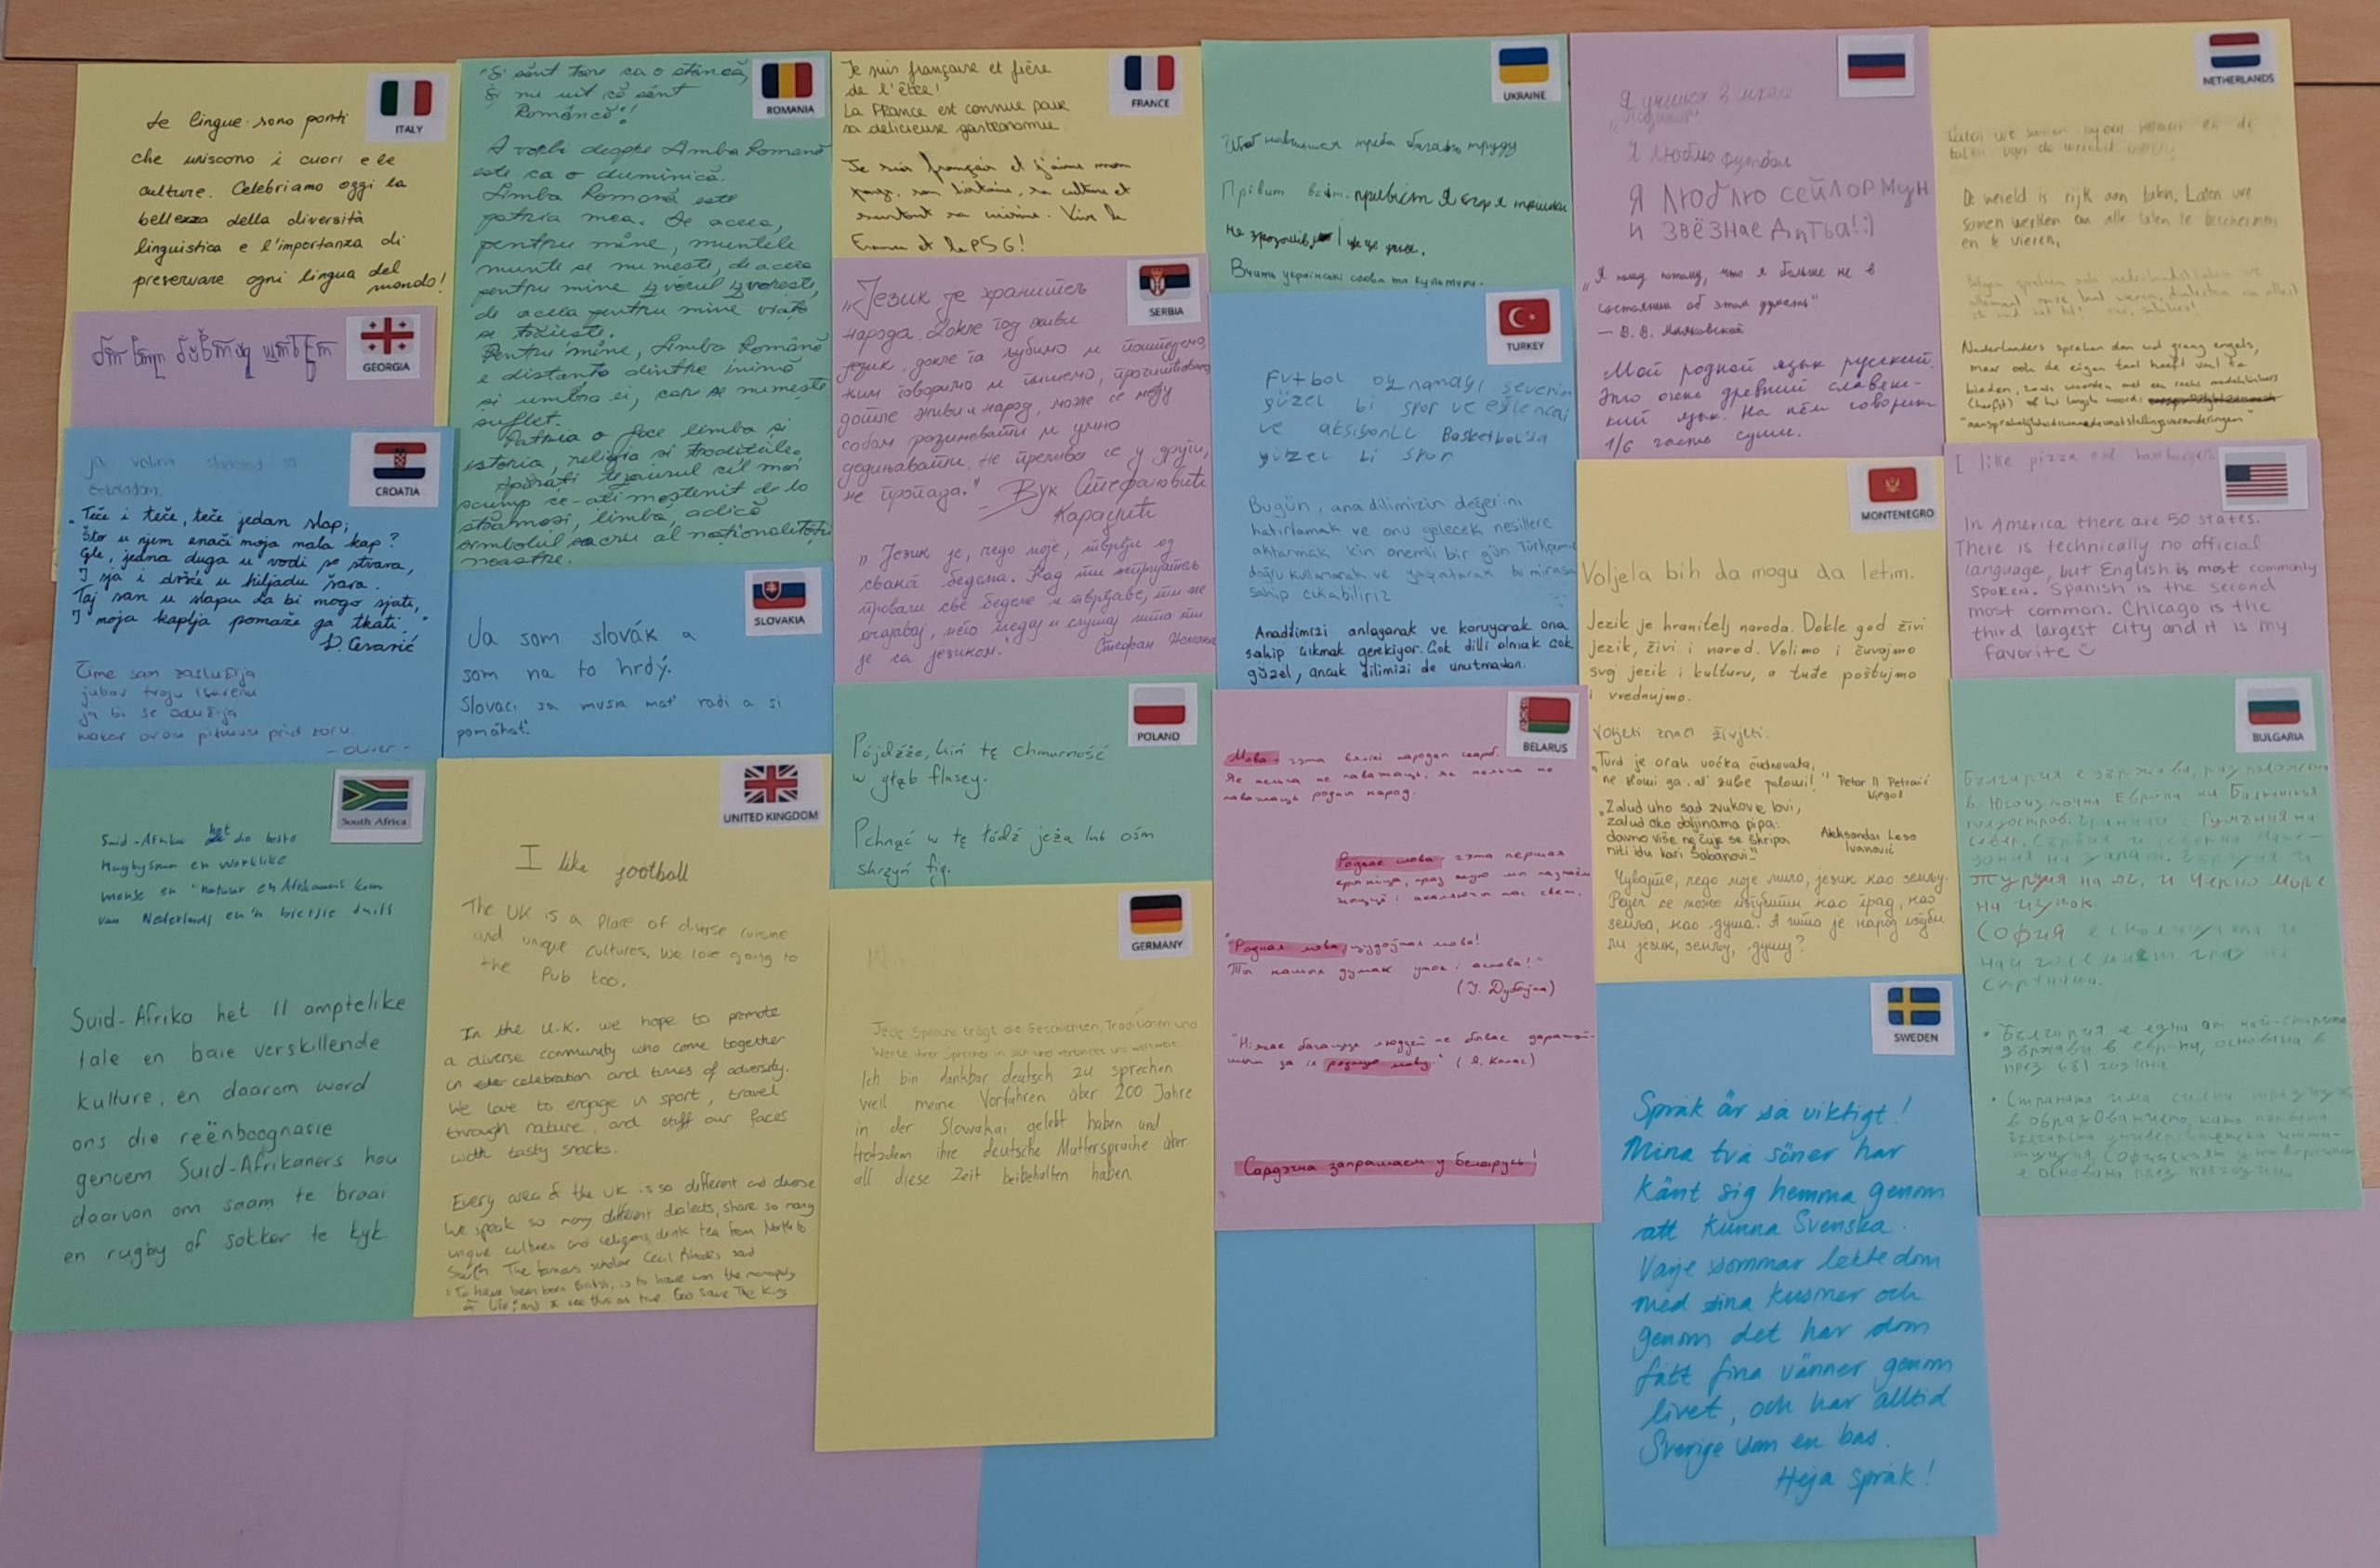 ITALY
Le lingue sono ponti
che uniscono i cuori e le
culture. Celebriamo oggi la
bellezza della diversità
linguistica e l'importanza di
preservare ogni lingua del
mondo!
GEORGIA
CROATIA
ja volim
čokoladom.
"Teče i teče, teče jedan slap;
Što u njem znači moja mala kap?
Gle, jedna duga u vodi se stvara,
I sja i dršće u hiljadu šara.
Taj san u slapu da bi mogo sjati,
I moja kaplja pomaže ga tkati."
D. Cesarić
Čime sam zaslužija
jubav tvoju
ja bi se odužija
makar ovom pismom prid zoru.
- Oliver -
South Africa
Suid-Afrika het die beste
Rugbyspan en worklike
mense en natuur en Afrikaans kom
van Nederlands en 'n bietjie duits
Suid-Afrika het 11 amptelike
tale en baie verskillende
kulture, en daarom word
ons die reënboognasie
genoem Suid-Afrikaners hou
daarvan om saam te braai
en rugby of sokker te kyk.
ROMANIA
"Și sunt tare ca o stâncă,
Și nu uit că sunt
Româncă"!
A vorbi despre Limba Română
este ca o duminică.
Limba Română este
patria mea. De aceea,
pentru mine, muntele
munte se numește, de aceea
pentru mine izvorul izvorește,
de aceea pentru mine viața
se trăiește.
Pentru mine, Limba Română
e distanța dintre inimă
și umbra ei, care se numește
suflet.
Patria o face limba și
istoria, religia și tradițiile.
Apărați tezaurul cel mai
scump ce-ați moștenit de la
strămoși, limba, adică
simbolul sacru al naționalității
noastre.
SLOVAKIA
Ja som slovák a
som na to hrdý.
Slovaci sa musia mať radi a si
pomáhať.
UNITED KINGDOM
I like football
The UK is a place of diverse cuisine
and unique cultures. We love going to
the Pub too.
In the U.K. we hope to promote
a diverse community who come together
in celebration and times of adversity.
We love to engage in sport, travel
through nature, and stuff our faces
with tasty snacks.
Every area of the UK is so different and diverse
We speak so many different dialects, share so many
unique cultures and religions, drink tea from North to
South. The famous scholar Cecil Rhodes said
"To have been born British, is to have won the monopoly
of life", and I see this as true. God Save The King.
FRANCE
Je suis française et fière
de l'être!
La France est connue pour
sa délicieuse gastronomie.
Je suis français et j'aime mon
pays, son histoire, sa culture et
surtout sa cuisine. Vive la
France et le PSG!
SERBIA
„Језик је хранитељ
народа. Докле год живи
језик, докле га љубимо и поштујемо,
њим говоримо и пишемо, прочишћавамо,
дотле живи и народ, може се међу
собом разумевати и умно
уједињавати, не прелива се у други,
не пропада."
Вук Стефановић
Караџић
„Језик је, чедо моје, тврђи од
сваког бедема. Кад ти непријатељ
провали све бедеме и тврђаве, ти не
очајавај, него гледај и слушај шта ти
је са језиком.
Стефан Немања
POLAND
Pójdźże, kiń tę chmurność
w głąb flaszy.
Pchnąć w tę łódź jeża lub ośm
skrzyń fig.
GERMANY
Jede Sprache trägt die Geschichten, Traditionen und
Werte ihrer Sprecher in sich und verbindet uns weltweit.
Ich bin dankbar deutsch zu sprechen
weil meine Vorfahren über 200 Jahre
in der Slowakai gelebt haben und
trotzdem ihre deutsche Muttersprache über
all diese Zeit beibehalten haben.
UKRAINE
навчитися треба багато труду
Прівит всім. привіт Я
не зрозумів
Вчить українські слова та культури.
TURKEY
Futbol oynamayı severim
güzel bi spor ve eğlenceli
ve aksiyonlu Basketbol'da
güzel bi spor
Bugün, ana dilimizin değerini
hatırlamak ve onu gelecek nesillere
aktarmak için önemli bir gün Türkçemizi
doğru kullanarak ve yaşatarak bu mirasa
sahip çıkabiliriz
Anadilimizi anlayarak ve koruyarak ona
sahip çıkmak gerekiyor. Çok dilli olmak çok
güzel, ancak dilimizi de unutmadan.
BELARUS
Мова - гэта вялікі народан скарб.
Яе нельга не паважаць, як нельга не
паважаць родны народ.
Роднае слова - гэта першая
крыніца, праз якую мы пазнаём
жыццё і акаляючы нас свет.
"Родная мова, цудоўная мова!
Ты нашых думак уток і аснова!"
(У. Дубоўка)
"Няма багацця людзей не бывае даражэй-
шым за іх родную мову." (Я. Колас)
Сардэчна запрашаем у Беларусь!
Я учился в школе
Я люблю футбол
Я люблю сейлор мун
и звёзнае дитьа!:)
"Я пишу потому, что я больше не в
состоянии об этом думать"
— В. В. Маяковский
Мой родной язык русский.
Это очень древний славянс-
кий язык. На нём говорит
1/6 часть суши.
MONTENEGRO
Voljela bih da mogu da letim.
Jezik je hranitelj naroda. Dokle god živi
jezik, živi i narod. Volimo i čuvajmo
svoj jezik i kulturu, a tuđe poštujmo
i vrednujmo.
Voljeti znači živjeti.
"Tvrd je orah voćka čudnovata,
ne slomi ga, al' zube polomi!"
Petar II Petrović
Njegoš
"Zalud uho sad zvukove lovi,
zalud oko daljinama pipa:
davno više ne čuje se škripa
niti idu kari Šabanovi."
Aleksandar Leso
Ivanović
Чувајте, чедо моје мило, језик као земљу.
Ријеч се може изгубити као град, као
земља, као душа. А шта је народ изгуби
ли језик, земљу, душу?
SWEDEN
Språk är så viktigt!
Mina två söner har
känt sig hemma genom
att kunna Svenska.
Varje sommar lekte dom
med sina kusiner och
genom det har dom
fått fina vänner genom
livet, och har alltid
Sverige som en bas.
Heja språk!
NETHERLANDS
De wereld is rijk aan talen. Laten we
samen werken om alle talen te beschermen
en te vieren.
Nederlanders spreken dan wel graag engels,
maar ook de eigen taal heeft veel te
bieden, zoals woorden met een reeks medeklinkers
(herfst) of het langste woord:
"aansprakelijkheidswaardevaststellingsveranderingen"
I like pizza and hamburger.
In America there are 50 states.
There is technically no official
language, but English is most commonly
spoken. Spanish is the second
most common. Chicago is the
third largest city and it is my
favorite
BULGARIA
България е държава, разположена
в Югоизточна Европа на Балканския
полуостров. Граничи с Румъния на
север, Сърбия и северна Маке-
дония на запад, Гърция и
Турция на юг, и Черно море
на изток.
София е столицата и
най големият град на
страната.
• България е една от най-старите
държави в европа, основана в
през 681 година.
• Страната има силни традиции
в образованието, като първата
българска университетска инсти-
туция, Софийския университет
е основана през